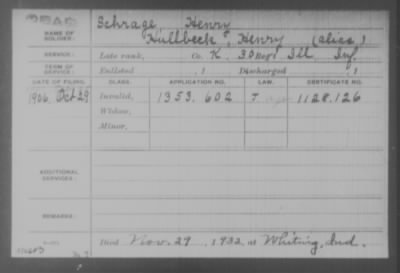 DEAD
Schrage, Henry
NAME OF SOLDIER: Hullbeck, Henry (alias)
SERVICE: Late rank, Co. K, 30 Reg't Ill. Inf.
TERM OF SERVICE: Enlisted , 1 Discharged , 1
DATE OF FILING. CLASS. APPLICATION NO. LAW. CERTIFICATE NO.
1906, Oct 29 Invalid, 1353.602 J 1128.126
Widow,
Minor,
ADDITIONAL SERVICES:
REMARKS:
Died Nov. 29, 1932, at Whiting, Ind.